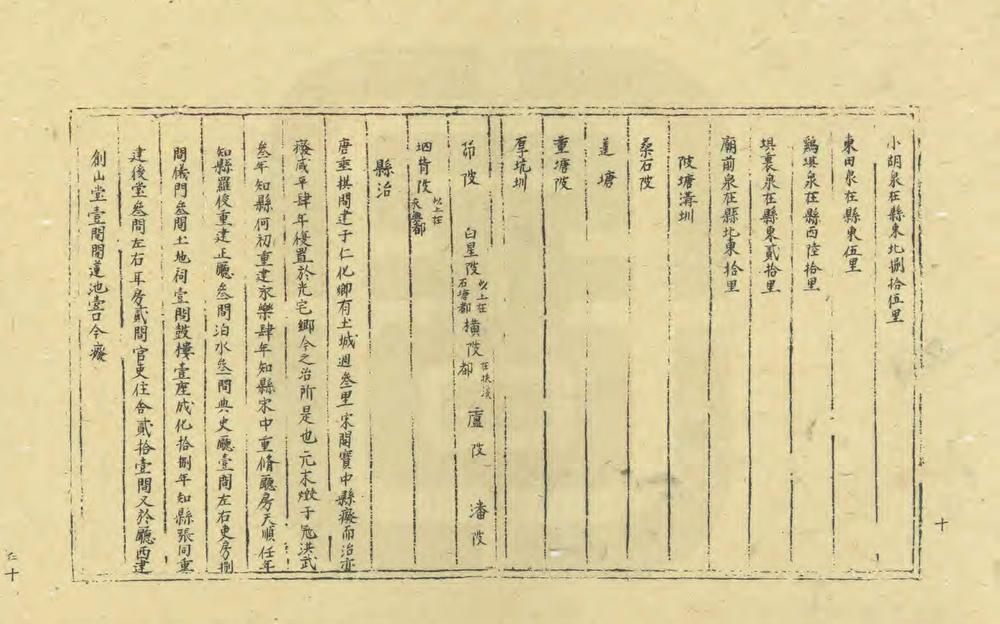 小胡泉在縣東北捌拾伍里
東田泉在縣東伍里
鷄塘泉在縣西陸拾里
塘裏泉在縣東貳拾里
廟前泉在縣北東拾里
陂塘溝圳
桑石陂
蓮塘
重塘陂
厚坑圳
節陂 白星陂 以上在石塘都 橫陂 在扶溪都 盧陂 潘陂
坭背陂 以上在永豐都
縣治
唐垂拱間建于仁化鄉有土城週叁里宋開寶中縣廢而治亦
廢咸平肆年復置於光宅鄉今之治所是也元末燬于兵洪武
叁年知縣何初重建永樂肆年知縣宋中重脩廳房天順任年
知縣羅俊重建正廳叁間泊水叁間典史廳壹間左右吏房捌
間儀門叁間土地祠壹間鼓樓壹座成化拾捌年知縣張同重
建後堂叁間左右耳房貳間官吏住舍貳拾壹間又於廳西建
創山堂壹間開蓮池壹口今廢
十
仁十